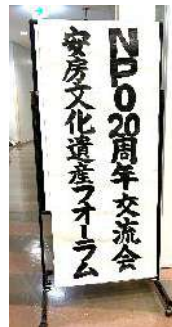 NPO20周年交流会
安房文化遺産フォーラム